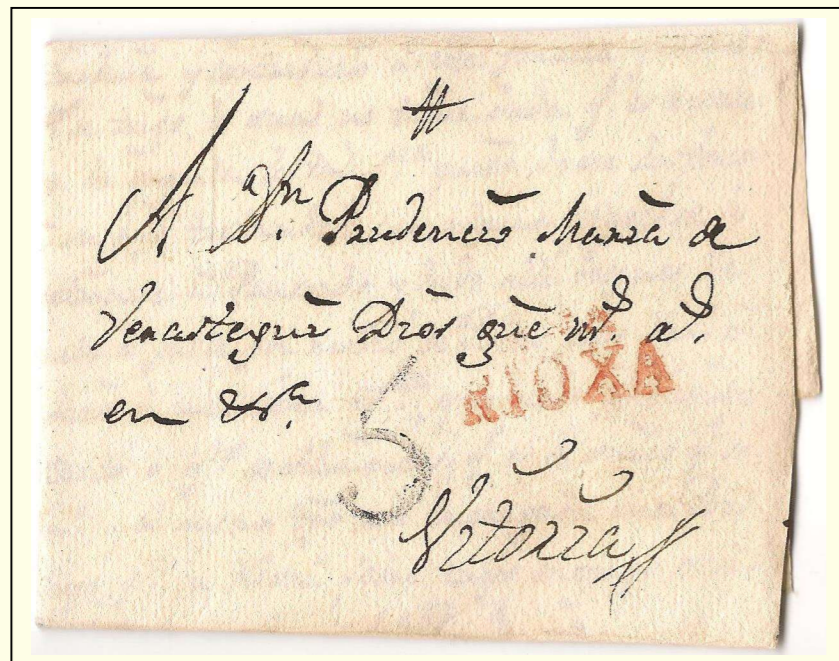 A Dn. Prudencio Maria de
Verastegui Dios gue ms. as.
en &a.
5
RIOXA
Vitoria